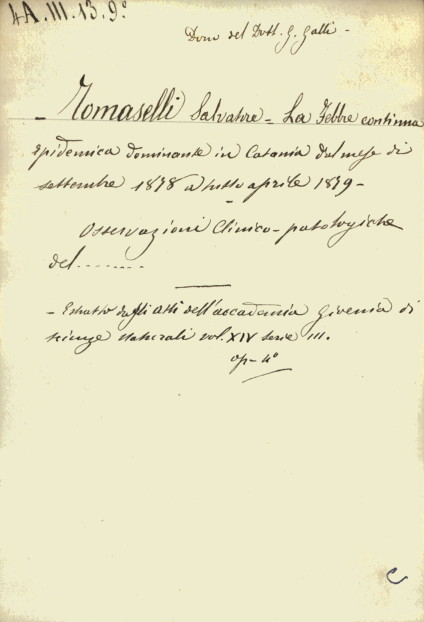 4A.III.13.9°
Dono del Dott. G. Galli -
- Tomaselli Salvatore = La Febbre continua
epidemica dominante in Catania dal mese di
settembre 1878 a tutto aprile 1879 -
Osservazioni Clinico-patologiche
del........
- Estratto dagli atti dell'accademia Givenia di
scienze naturali vol. XIV serie III.
op- 4°
C